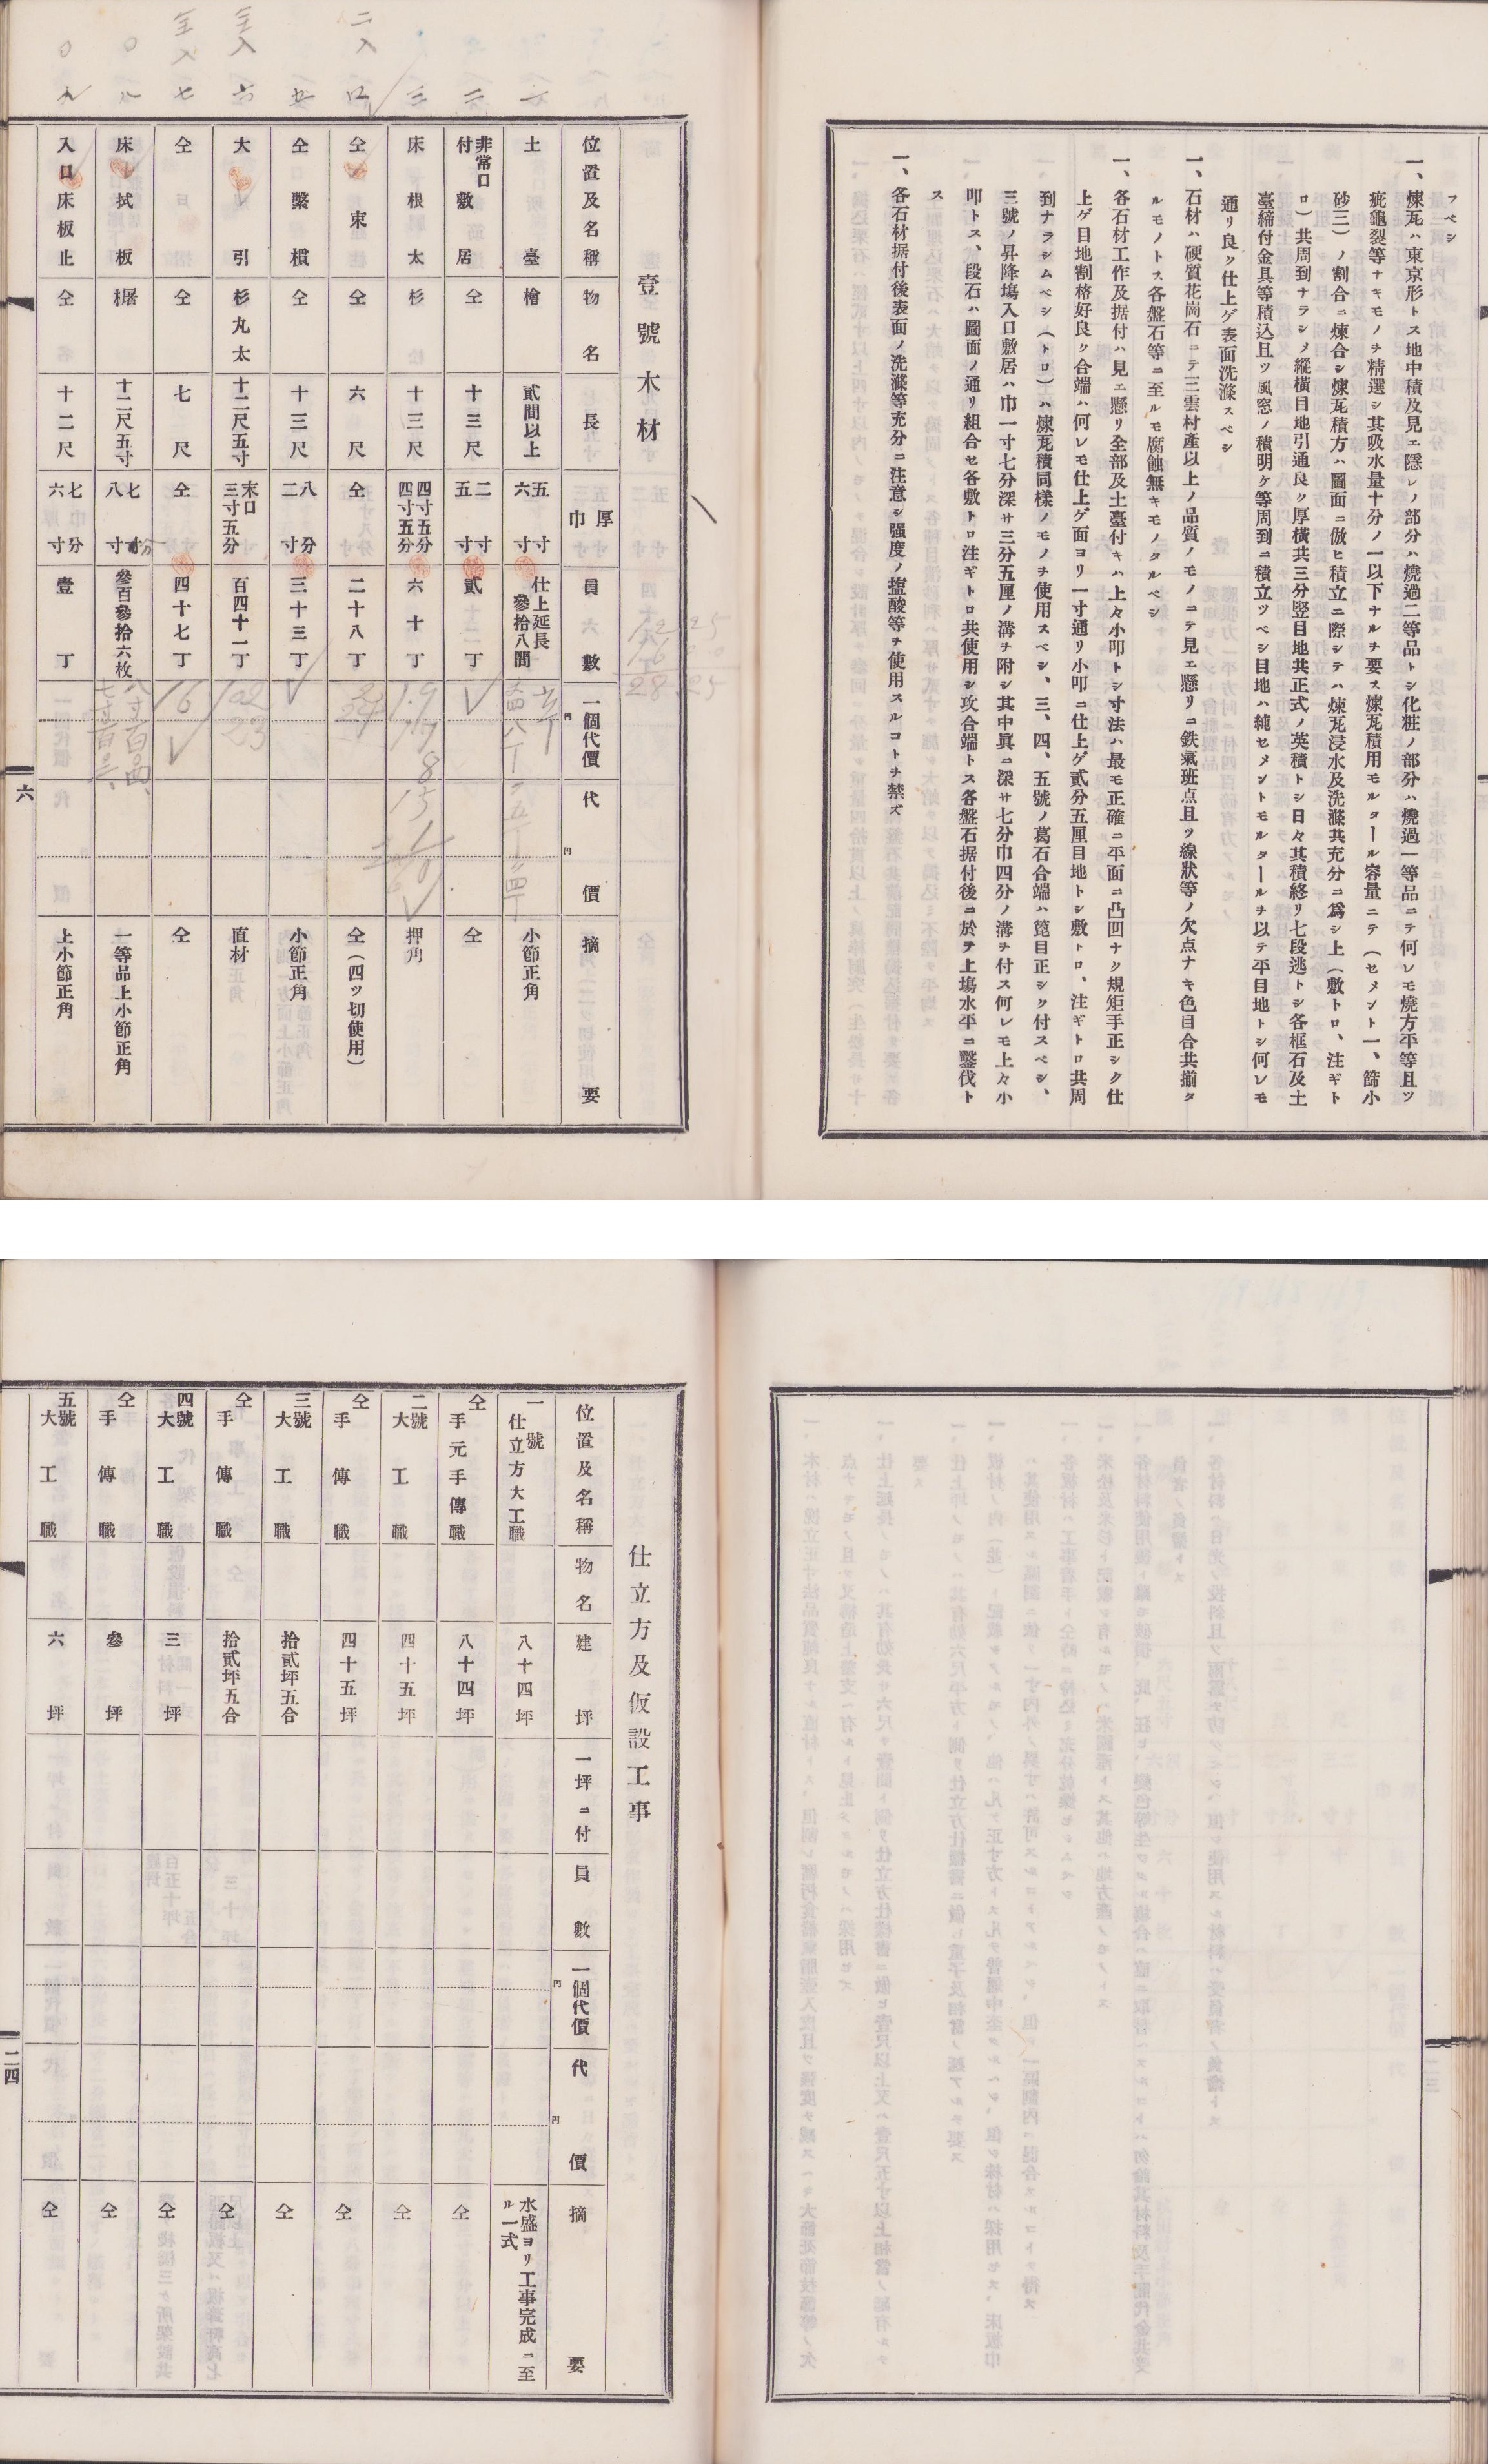 フベシ
一、煉瓦ハ東京形トス地中積及見エ隱レノ部分ハ燒過二等品トシ化粧ノ部分ハ燒過一等品ニテ何レモ燒方平等且ツ
疵龜裂等ナキモノヲ精選シ其吸水量十分ノ一以下ナルヲ要ス煉瓦積用モルタール容量ニテ(セメント一、篩小
砂三)ノ割合ニ煉合シ煉瓦積方ハ圖面ニ倣ヒ積立ニ際シテハ煉瓦浸水及洗滌共充分ニ爲シ上(敷トロ、注ギト
ロ)共周到ナラシメ縱橫目地引通良ク厚橫共三分竪目地共正式ノ英積トシ日々其積終リ七段逃トシ各框石及土
臺締付金具等積込且ツ風窓ノ積明ケ等周到ニ積立ツベシ目地ハ純セメントモルタールヲ以テ平目地トシ何レモ
通リ良ク仕上ゲ表面洗滌スベシ
一、石材ハ硬質花崗石ニテ三雲村產以上ノ品質ノモノニテ見エ懸リニ鉄氣班点且ツ線狀等ノ欠点ナキ色目合共揃タ
ルモノトス各盤石等ニ至ルモ腐蝕無キモノタルベシ
一、各石材工作及据付ハ見エ懸リ全部及土臺付キハ上々小叩トシ寸法ハ最モ正確ニ平面ニ凸凹ナク規矩手正シク仕
上ゲ目地割格好良ク合端ハ何レモ仕上ゲ面ヨリ一寸通リ小叩ニ仕上ゲ貳分五厘目地トシ敷トロ、注ギトロ共周
到ナラシムベシ(トロ)ハ煉瓦積同樣ノモノヲ使用スベシ、三、四、五號ノ葛石合端ハ箆目正シク付スベシ、
三號ノ昇降塲入口敷居ハ巾一寸七分深サ三分五厘ノ溝ヲ附シ其中眞ニ深サ七分巾四分ノ溝ヲ付ス何レモ上々小
叩トス、段石ハ圖面ノ通リ組合セ各敷トロ注ギトロ共使用シ攻合端トス各盤石据付後ニ於テ上塲水平ニ鑿伐ト
ス
一、各石材据付後表面ノ洗滌等充分ニ注意シ强度ノ塩酸等ヲ使用スルコトヲ禁ズ
壹號木材
位置及名稱 物名 長 厚巾 員數 一個代價 代價 摘要
一 土臺 檜 貳間以上 五寸六寸 仕上延長參拾八間 小節正角
二 非常口付敷居 仝 十三尺 二寸五寸 貳丁 仝
三 床根太 杉 十三尺 四寸五分四寸五分 六十丁 押角
四 仝束 仝 六尺 仝 二十八丁 仝(四ツ切使用)
五 仝繫樌 仝 十三尺 八分二寸 三十三丁 小節正角
六 大引 杉丸太 十二尺五寸 末口三寸五分 百四十一丁 直材
七 仝 仝 七尺 仝 四十七丁 16 仝
八 床拭板 椐 十二尺五寸 七分八寸 參百參拾六枚 一等品上小節正角
九 入口床板止 仝 十二尺 七分六寸 壹丁 上小節正角
六
仕立方及仮設工事
位置及名稱 物名 建坪 一坪ニ付 員數 一個代價 代價 摘要
一號仕立方大工職 八十四坪 水盛ヨリ工事完成ニ至ル一式
仝手元手傳職 八十四坪 仝
二號大工職 四十五坪 仝
仝手傳職 四十五坪 仝
三號大工職 拾貳坪五合 仝
仝手傳職 拾貳坪五合 仝
四號大工職 三坪 仝
仝手傳職 參坪 仝
五號大工職 六坪 仝
二四